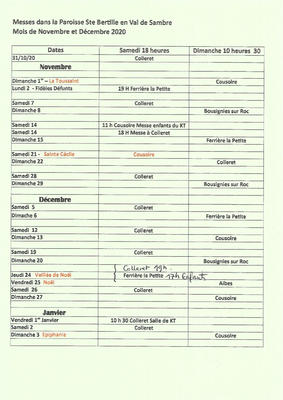 Messes dans la Paroisse Ste Bertille en Val de Sambre
Mois de Novembre et Décembre 2020
Dates Samedi 18 heures Dimanche 10 heures 30
31/10/20 Colleret
Novembre
Dimanche 1er La Toussaint Cousolre
Lundi 2 - Fidèles Défunts 19 H Ferrière la Petite
Samedi 7 Colleret
Dimanche 8 Bousignies sur Roc
Samedi 14 11 h Cousolre Messe enfants du KT
Samedi 14 18 H Messe à Colleret
Dimanche 15 Ferrière la Petite
Samedi 21 - Sainte Cécile Cousolre
Dimanche 22 Colleret
Samedi 28 Colleret
Dimanche 29 Bousignies sur Roc
Décembre
Samedi 5 Colleret
Dimache 6 Ferrière la Petite
Samedi 12 Colleret
Dimanche 13 Cousolre
Samedi 19 Colleret
Dimanche 20 Bousignies sur Roc
Colleret 19h.
Jeudi 24 Veillée de Noël Ferrière la Petite 17h Enfants
Vendredi 25 Noël Aibes
Samedi 26 Colleret
Dimanche 27 Cousolre
Janvier
Vendredi 1er Janvier 10 h 30 Colleret Salle de KT
Samedi 2 Colleret
Dimanche 3 Epiphanie Cousolre